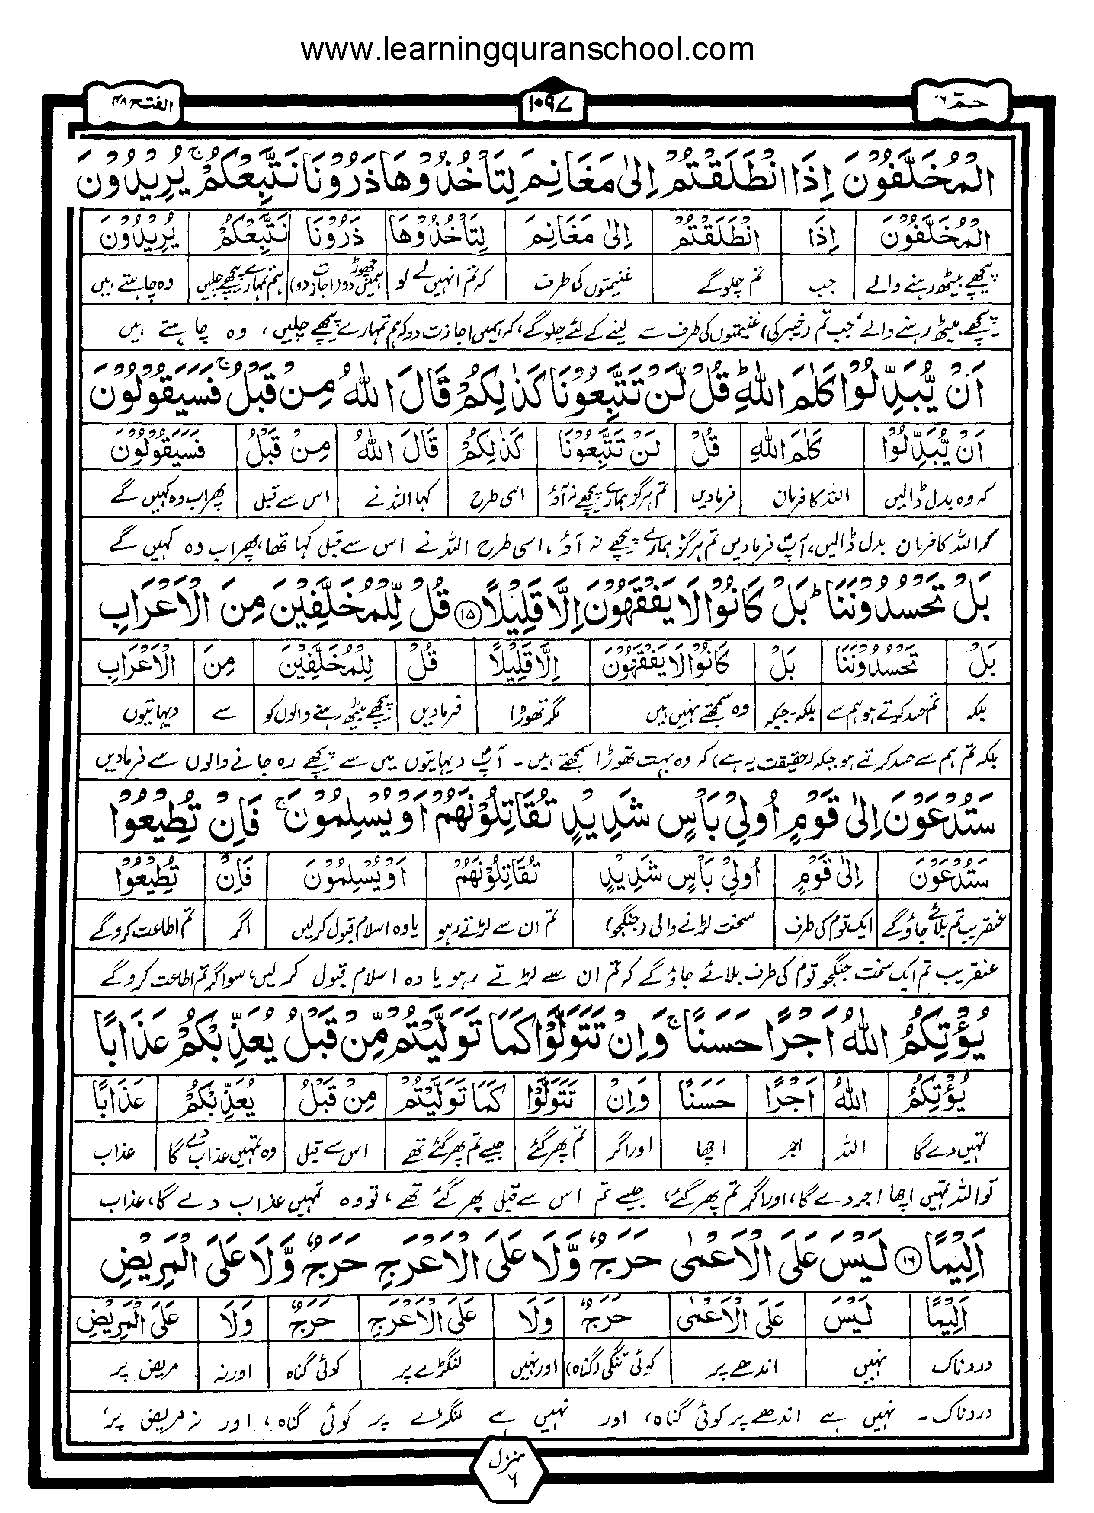 www.learningquranschool.com
حٰمٓ ۲۶
۱۰۹۷
الفتح ۴۸
الْمُخَلَّفُوْنَ اِذَا انْطَلَقْتُمْ اِلٰى مَغَانِمَ لِتَاْخُذُوْهَا ذَرُوْنَا نَتَّبِعْكُمْ ۚ يُرِيْدُوْنَ
الْمُخَلَّفُوْنَ اِذَا انْطَلَقْتُمْ اِلٰى مَغَانِمَ لِتَاْخُذُوْهَا ذَرُوْنَا نَتَّبِعْكُمْ يُرِيْدُوْنَ
پیچھے بیٹھ رہنے والے جب تم چلو گے غنیمتوں کی طرف کہ تم انہیں لے لو ہمیں چھوڑ دو (اجازت دو) ہم تمہارے پیچھے چلیں وہ چاہتے ہیں
پیچھے بیٹھ رہنے والے، جب تم (خیبر کی) غنیمتوں کی طرف سے لینے کے لئے چلو گے، کہ ہمیں اجازت دو کہ ہم تمہارے پیچھے چلیں، وہ چاہتے ہیں
اَنْ يُّبَدِّلُوْا كَلٰمَ اللّٰهِ ؕ قُلْ لَّنْ تَتَّبِعُوْنَا كَذٰلِكُمْ قَالَ اللّٰهُ مِنْ قَبْلُ ۚ فَسَيَقُوْلُوْنَ
اَنْ يُّبَدِّلُوْا كَلٰمَ اللّٰهِ قُلْ لَّنْ تَتَّبِعُوْنَا كَذٰلِكُمْ قَالَ اللّٰهُ مِنْ قَبْلُ فَسَيَقُوْلُوْنَ
کہ وہ بدل ڈالیں اللہ کا فرمان فرمادیں تم ہرگز ہمارے پیچھے نہ آؤ اسی طرح کہا اللہ نے اس سے قبل پھر اب وہ کہیں گے
کہ اللہ کا فرمان بدل ڈالیں، آپ فرمادیں تم ہرگز ہمارے پیچھے نہ آؤ، اسی طرح اللہ نے اس سے قبل کہا تھا، پھر اب وہ کہیں گے
بَلْ تَحْسُدُوْنَنَا ؕ بَلْ كَانُوْا لَا يَفْقَهُوْنَ اِلَّا قَلِيْلًا ۝۱۵ قُلْ لِّلْمُخَلَّفِيْنَ مِنَ الْاَعْرَابِ
بَلْ تَحْسُدُوْنَنَا بَلْ كَانُوْا لَا يَفْقَهُوْنَ اِلَّا قَلِيْلًا قُلْ لِّلْمُخَلَّفِيْنَ مِنَ الْاَعْرَابِ
بلکہ تم حسد کرتے ہو ہم سے بلکہ۔جبکہ وہ سمجھتے نہیں ہیں مگر تھوڑا فرمادیں پیچھے بیٹھ رہنے والوں کو سے دیہاتیوں
بلکہ تم ہم سے حسد کرتے ہو جبکہ (حقیقت یہ ہے) کہ وہ بہت تھوڑا سمجھتے ہیں۔ آپ دیہاتیوں میں سے پیچھے رہ جانے والوں سے فرمادیں
سَتُدْعَوْنَ اِلٰى قَوْمٍ اُولِيْ بَاْسٍ شَدِيْدٍ تُقَاتِلُوْنَهُمْ اَوْ يُسْلِمُوْنَ ۚ فَاِنْ تُطِيْعُوْا
سَتُدْعَوْنَ اِلٰى قَوْمٍ اُولِيْ بَاْسٍ شَدِيْدٍ تُقَاتِلُوْنَهُمْ اَوْ يُسْلِمُوْنَ فَاِنْ تُطِيْعُوْا
عنقریب تم بلائے جاؤ گے ایک قوم کی طرف سخت لڑنے والی (جنگجو) تم ان سے لڑتے رہو یا وہ اسلام قبول کرلیں اگر تم اطاعت کرو گے
عنقریب تم ایک سخت جنگجو قوم کی طرف بلائے جاؤ گے کہ تم ان سے لڑتے رہو یا وہ اسلام قبول کرلیں، سو اگر تم اطاعت کرو گے
يُؤْتِكُمُ اللّٰهُ اَجْرًا حَسَنًا ۚ وَاِنْ تَتَوَلَّوْا كَمَا تَوَلَّيْتُمْ مِّنْ قَبْلُ يُعَذِّبْكُمْ عَذَابًا
يُؤْتِكُمُ اللّٰهُ اَجْرًا حَسَنًا وَاِنْ تَتَوَلَّوْا كَمَا تَوَلَّيْتُمْ مِنْ قَبْلُ يُعَذِّبْكُمْ عَذَابًا
تمہیں دے گا اللہ اجر اچھا اور اگر تم پھر گئے جیسے تم پھر گئے تھے اس سے قبل وہ تمہیں عذاب دے گا عذاب
تو اللہ تمہیں اچھا اجر دے گا، اور اگر تم پھر گئے، جیسے تم اس سے قبل پھر گئے تھے، تو وہ تمہیں عذاب دے گا، عذاب
اَلِيْمًا ۝۱۶ لَيْسَ عَلَى الْاَعْمٰى حَرَجٌ وَّلَا عَلَى الْاَعْرَجِ حَرَجٌ وَّلَا عَلَى الْمَرِيْضِ
اَلِيْمًا لَيْسَ عَلَى الْاَعْمٰى حَرَجٌ وَّلَا عَلَى الْاَعْرَجِ حَرَجٌ وَّلَا عَلَى الْمَرِيْضِ
دردناک نہیں اندھے پر کوئی تنگی (گناہ) اور نہیں لنگڑے پر کوئی گناہ اور نہ مریض پر
دردناک۔ نہیں ہے اندھے پر کوئی گناہ، اور نہیں ہے لنگڑے پر کوئی گناہ، اور نہ مریض پر،
منزل
۶